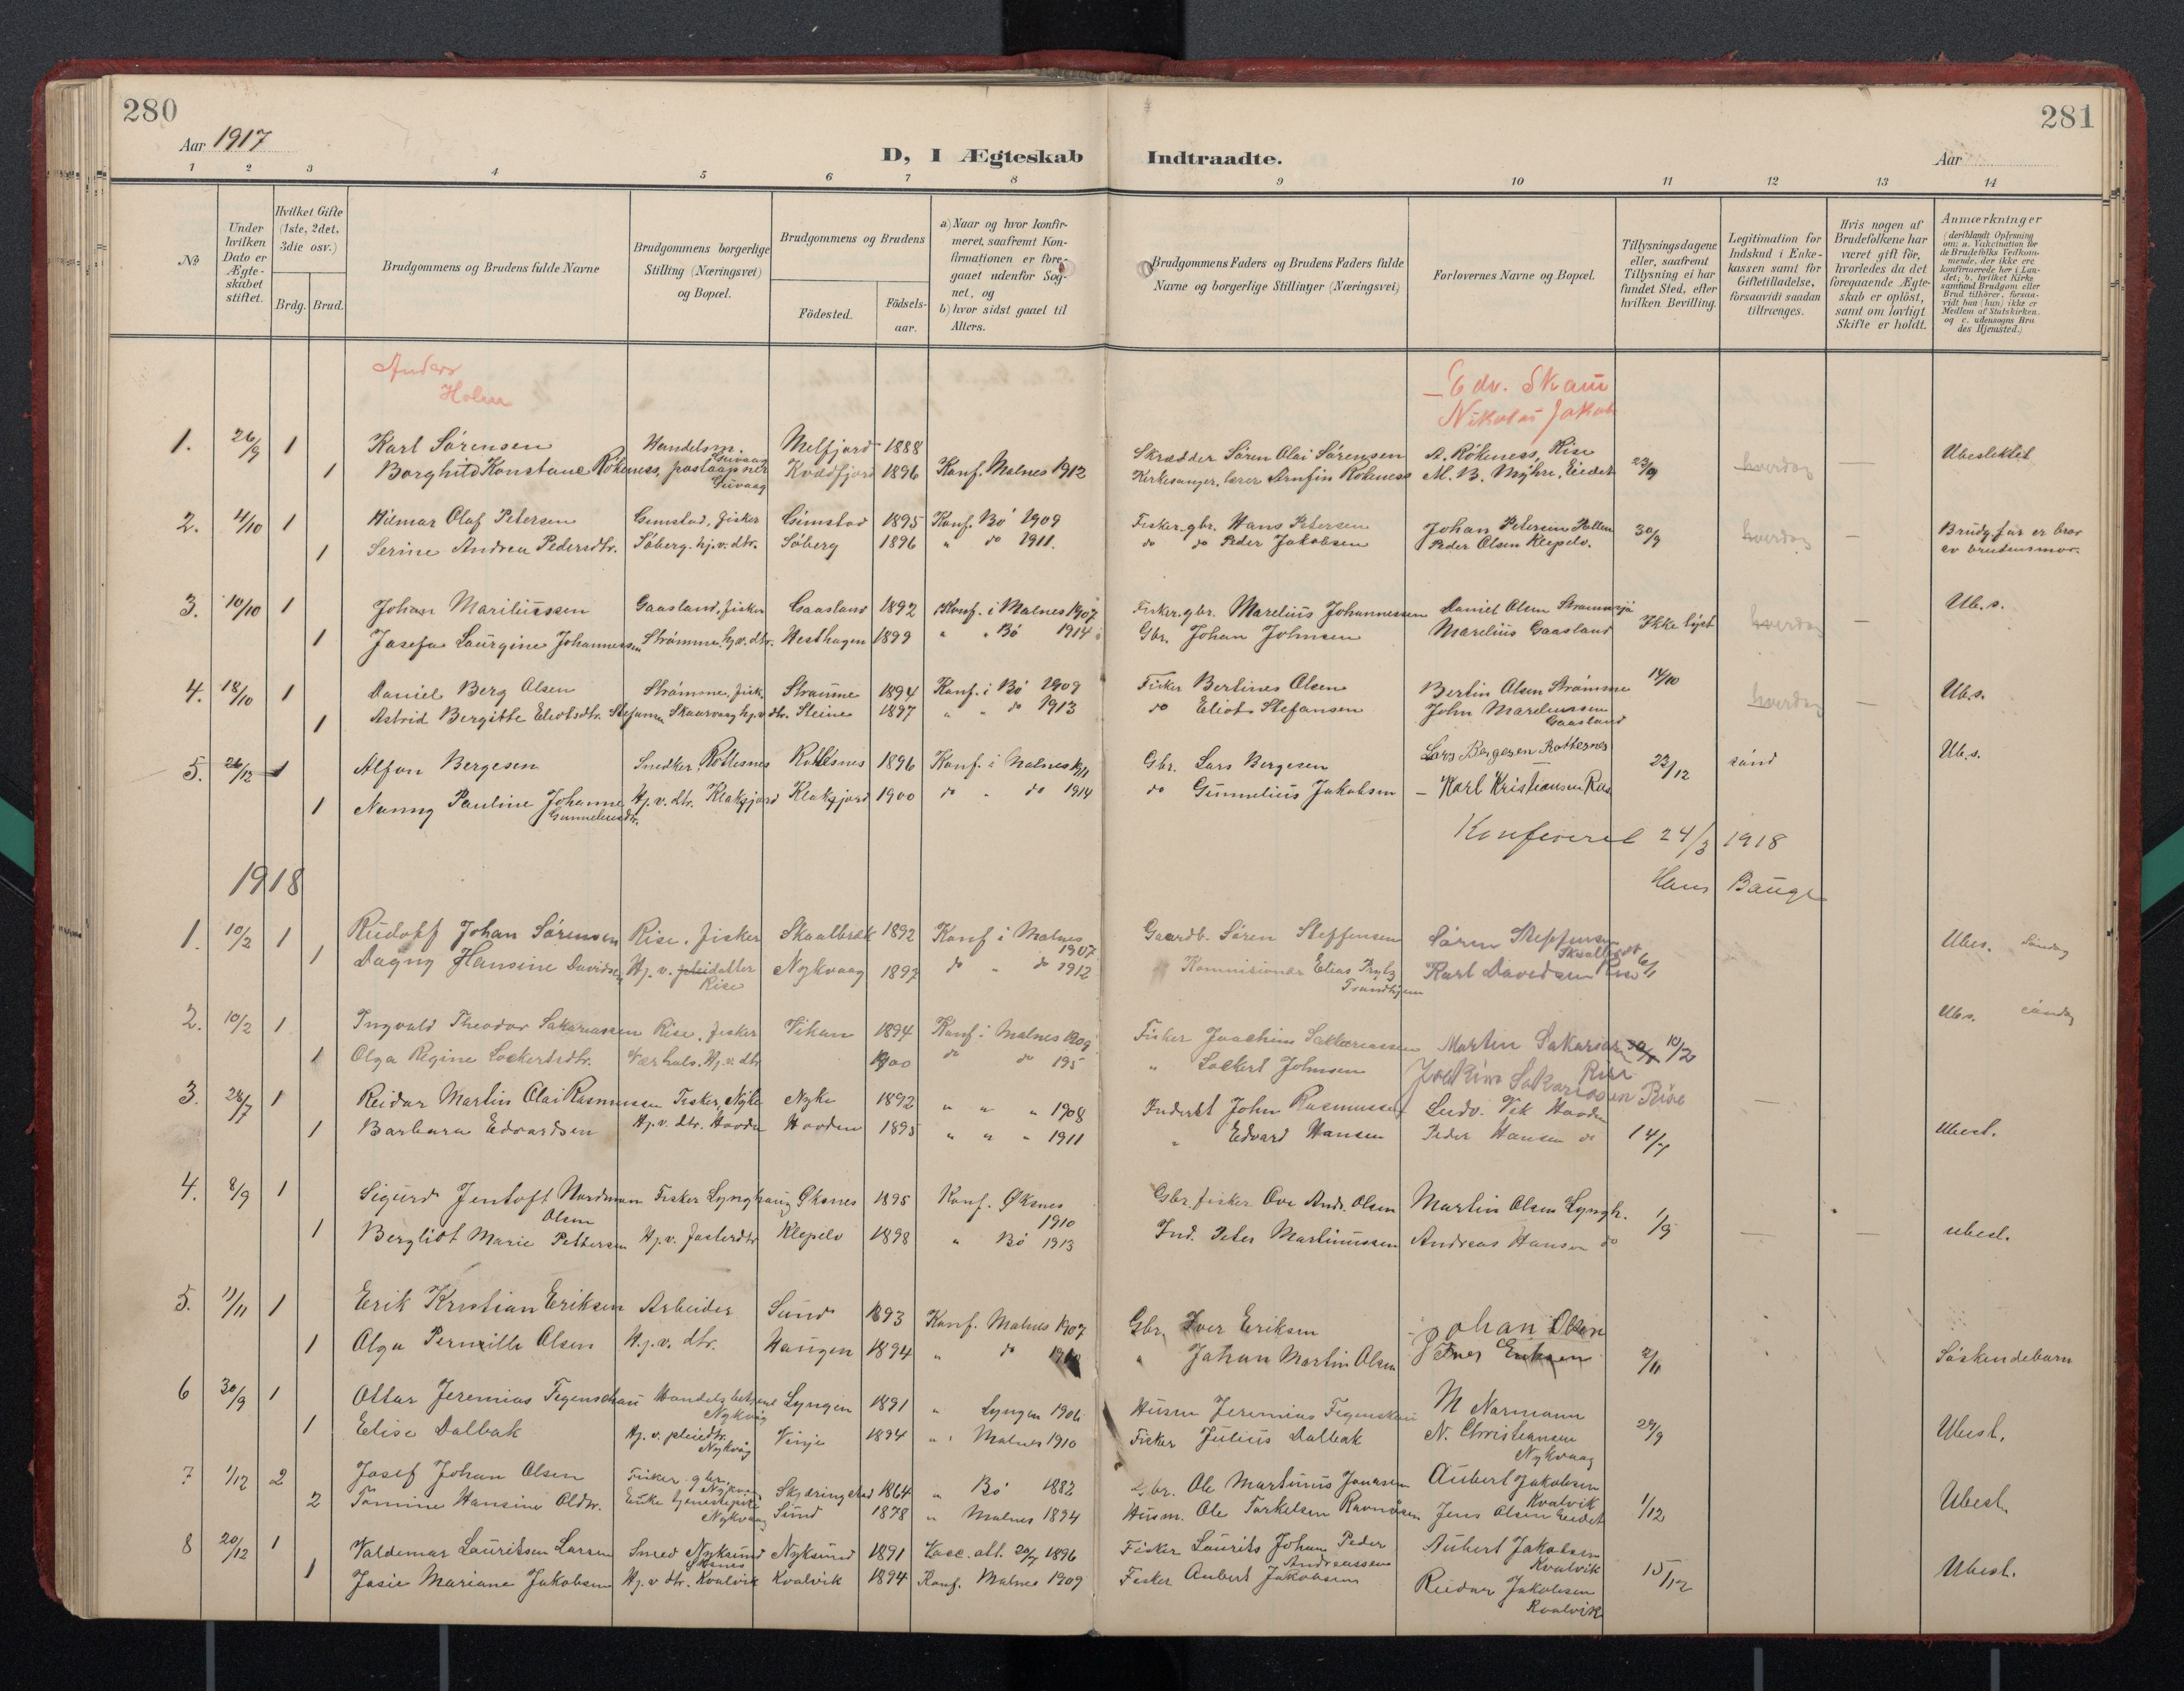 280
281
Aar 1917
D, I Ægteskab Indtraadte.
Aar
1 2 3 4 5 6 7 8 9 10 11 12 13 14
No
Under hvilken Dato er Ægteskabet stiftet.
Hvilket Gifte (1ste, 2det, 3die osv.)
Brdg. Brud.
Brudgommens og Brudens fulde Navne
Brudgommens borgerlige Stilling (Næringsvei) og Bopæl.
Brudgommens og Brudens
Födested.
Födselsaar.
a) Naar og hvor konfirmeret, saafremt Konfirmationen er foregaaet udenfor Sognet, og
b) hvor sidst gaaet til Alters.
Brudgommens Faders og Brudens Faders fulde Navne og borgerlige Stillinger (Næringsvei)
Forlovernes Navne og Bopæl.
Tillysningsdagene eller, saafremt Tillysning ei har fundet Sted, efter hvilken Bevilling.
Legitimation for Indskud i Enkekassen samt for Giftetilladelse, forsaavidt saadan tiltrænges.
Hvis nogen af Brudefolkene har været gift før, hvorledes da det foregaaende Ægteskab er oplöst, samt om lovligt Skifte er holdt.
Anmærkninger (deriblandt Oplysning om: a. Vakcination for de Brudefolks Vedkommende, der ikke ere konfirmerede her i Landet; b. hvilket Kirkesamfund Brudgom eller Brud tilhörer, forsaavidt han (hun) ikke er Medlem af Statskirken. og c. udensogns Brudes Hjemsted.)
Anders Holm
Edv. Skam
Nikolai Jakob
1. 26/9 1 Karl Sørensen Handelsm. Guvaag Melfjord 1888 Skrædder Søren Olai Sørensen A. Rökeness, Rise Ubeslektet
1 Borghild Konstance Rökeness, postaapner Guvaag Kvædfjord 1896 Konf. Malnes 1912 Kirkesanger, lærer Arnfin Rökeness M. B. Myhre, Eidet 23/9 hverdag —
2. 4/10 1 Hilmar Olaf Petersen Gimstad, fisker Gimstad 1895 Konf. Bö 1909 Fisker. gbr. Hans Petersen Johan Petersen Pollen 30/9 hverdag — Brudg. far er bror
1 Serine Andrea Pedersdtr. Söberg. hj.v. dtr. Söberg 1896 " do 1911. do do Peder Jakobsen Peder Olsen Klepelv. av brudens mor.
3. 10/10 1 Johan Mariliussen Gaasland, fisker Gaasland 1892 Konf. i Malnes 1907 Fisker. gbr. Marelius Johannessen Daniel Olsen Ub. s.
1 Josefa Laurgine Johannessen Strömme. hj.v. dtr. Westhagen 1899 " " Bö 1914 Gbr. Johan Johnsen Marelius Gaasland Ikke lyst hverdag —
4. 18/10 1 Daniel Berg Olsen Strömme, fisk. Straume 1894 Konf. i Bö 1909 Fisker Bertines Olsen Bertin Olsen Strömme 14/10 hverdag — Ub. s.
1 Astrid Bergitte Eliotsdtr. Stefansen Skaarvaag hj.v. dtr. Steine 1897 " " do 1913 do Eliot Stefansen John Mareliussen Gaasland
5. 26/12 1 Alfon Bergesen Snedker, Rottesnes Rottesnes 1896 Konf. i Malnes 1911 Gbr. Lars Bergesen Lars Bergesen Rottesnes 23/12 sönd Ub. s.
1 Nanny Pauline Johanne Gunneliusdtr. Hj. v. dtr. Klaksjord Klaksjord 1900 do " do 1914 do Gunnelius Jakobsen — Karl Kristiansen Rise
Konfereret 24/3 1918
Hans Bauge
1918
1. 10/2 1 Rudolf Johan Sörensen Rise, fisker Skaalbræk 1892 Konf i Malnes 1907 Gaardb. Sören Steffensen Sören Steffensen Ubes. Söndag
1 Dagny Hansine Davidsen Hj. v. pleidatter Rise Nykvaag 1892 do " do 1912 Kommisionær Elias Trondhjem Karl Davidsen Rise 6/1
2. 10/2 1 Ingvald Theodor Sakariassen Rise, fisker Vikan 1894 Konf. i Malnes 1909 Fisker Joachim Sakkariassen Martin Sakarsen Rise 10/2 Ubs. söndag
1 Olga Regine Lockertsdtr. Hj. v. dtr 1900 do do 195 " Lockert Johnsen Joakim Sakariassen Rise
3. 28/7 1 Reidar Martin Olai Rasmussen Fisker, Nyke Nyke 1892 " " " 1908 Inderst John Rasmussen Ludv. Vik Hovden —
1 Barbara Edvardsen Hj. v. dtr. Hovden Hovden 1895 " " " 1911 " Edvard Hansen Peder Hansen do 14/7 Ubesl.
4. 8/9 1 Sigurd Jentoft Nordman Olsen Fisker Lynghaug Øksnes 1895 Konf. Øksnes 1910 Gbr. fisker Ove Andr. Olsen Martin Olsen Lyngh. 1/9
1 Bergliot Marie Pettersen Hj. v. fosterdtr Klepelv 1898 " Bö 1913 Ind. Peter Martinussen Andreas Hansen do — — ubesl.
5. 11/11 1 Erik Kristian Eriksen Arbeider Sund 1893 Konf. Malnes 1907 Gbr. Iver Eriksen Johan Olsen
1 Olga Pernille Olsen Hj. v. dtr. Haugen 1894 " do " Johan Martin Olsen Iver Eriksen 2/11 Söskendebarn
6 30/9 1 Ottar Jeremias Fegenschau Handelsbetjent Nykvåg Lyngen 1891 " Lyngen 1906 Husm Jeremias Fegenskau M Normann
1 Elise Dalbak Hj. v. pleiedtr. Nykvåg Vinje 1894 " Malnes 1910 Fisker Julius Dalbak N. Christiansen Nykvaag 29/9 Ubesl.
7 1/12 2 Josef Johan Olsen Fisker gbr. Nykvaag Skjæringstad 1864 " Bö 1882 Gbr. Ole Martinus Jonassen Aubert Jakobsen Kvalvik
2 Tomine Hansine Oldtr. Enke Nykvaag Sund 1878 " Malnes 1894 Husm. Ole Torkelsen Jens Olsen Eidet 1/12 Ubesl.
8 20/12 1 Valdemar Lauritsen Larsen Smed Nyksund Øksnes Nyksund 1891 Vacc. att. 20/7 1896 Fisker Laurits Johan Peder Andreassen Aubert Jakobsen Kvalvik
1 Josie Mariane Jakobsen Hj. v dtr. Kvalvik Kvalvik 1894 Konf. Malnes 1909 Fisker Aubert Jakobsen Reidar Jakobsen Kvalvik 15/12 Ubesl.